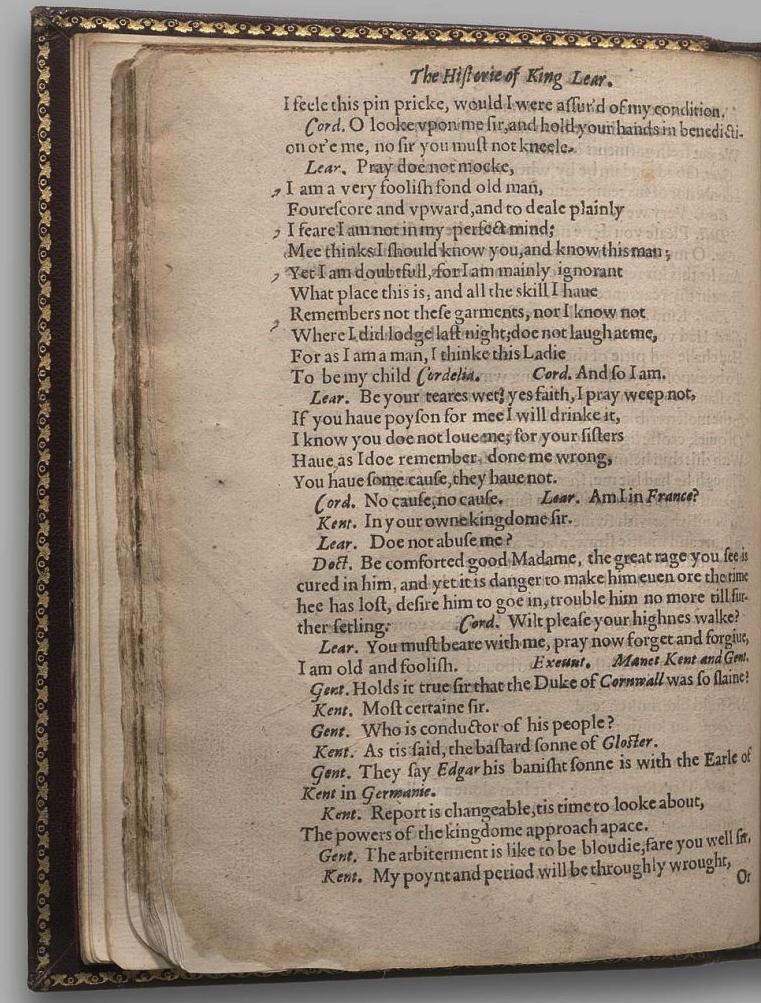 The Hiſtorie of King Lear.
I feele this pin pricke, would I were aſſur'd of my condition.
Cord. O looke vpon me ſir, and hold your hands in benedicti-
on or'e me, no ſir you muſt not kneele.
Lear. Pray doe not mocke,
I am a very fooliſh fond old man,
Foureſcore and vpward, and to deale plainly
I feare I am not in my perfect mind;
Mee thinks I ſhould know you, and know this man;
Yet I am doubtfull, for I am mainly ignorant
What place this is, and all the skill I haue
Remembers not theſe garments, nor I know not
Where I did lodge laſt night; doe not laugh at me,
For as I am a man, I thinke this Ladie
To be my child Cordelia. Cord. And ſo I am.
Lear. Be your teares wet? yes faith, I pray weep not,
If you haue poyſon for mee I will drinke it,
I know you doe not loue me; for your ſiſters
Haue as I doe remember. done me wrong,
You haue ſome cauſe, they haue not.
Cord. No cauſe, no cauſe. Lear. Am I in France?
Kent. In your owne kingdome ſir.
Lear. Doe not abuſe me?
Doct. Be comforted good Madame, the great rage you ſee is
cured in him, and yet it is danger to make him euen ore the time
hee has loſt, deſire him to goe in, trouble him no more till fur-
ther ſetling: Cord. Wilt pleaſe your highnes walke?
Lear. You muſt beare with me, pray now forget and forgiue,
I am old and fooliſh. Exeunt. Manet Kent and Gent.
Gent. Holds it true ſir that the Duke of Cornwall was ſo ſlaine?
Kent. Moſt certaine ſir.
Gent. Who is conductor of his people?
Kent. As tis ſaid, the baſtard ſonne of Gloſter.
Gent. They ſay Edgar his baniſht ſonne is with the Earle of
Kent in Germanie.
Kent. Report is changeable, tis time to looke about,
The powers of the kingdome approach apace.
Gent. The arbiterment is like to be bloudie, fare you well ſir,
Kent. My poynt and period will be throughly wrought,
Or